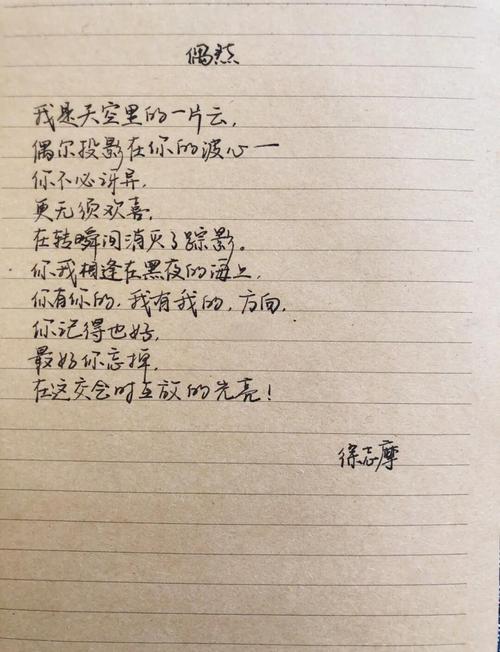 偶然
我是天空里的一片云,
偶尔投影在你的波心一
你不必讶异,
更无须欢喜,
在转瞬间消灭了踪影。
你我相逢在黑夜的海上,
你有你的,我有我的,方向,
你记得也好,
最好你忘掉,
在这交会时互放的光亮!
徐志摩